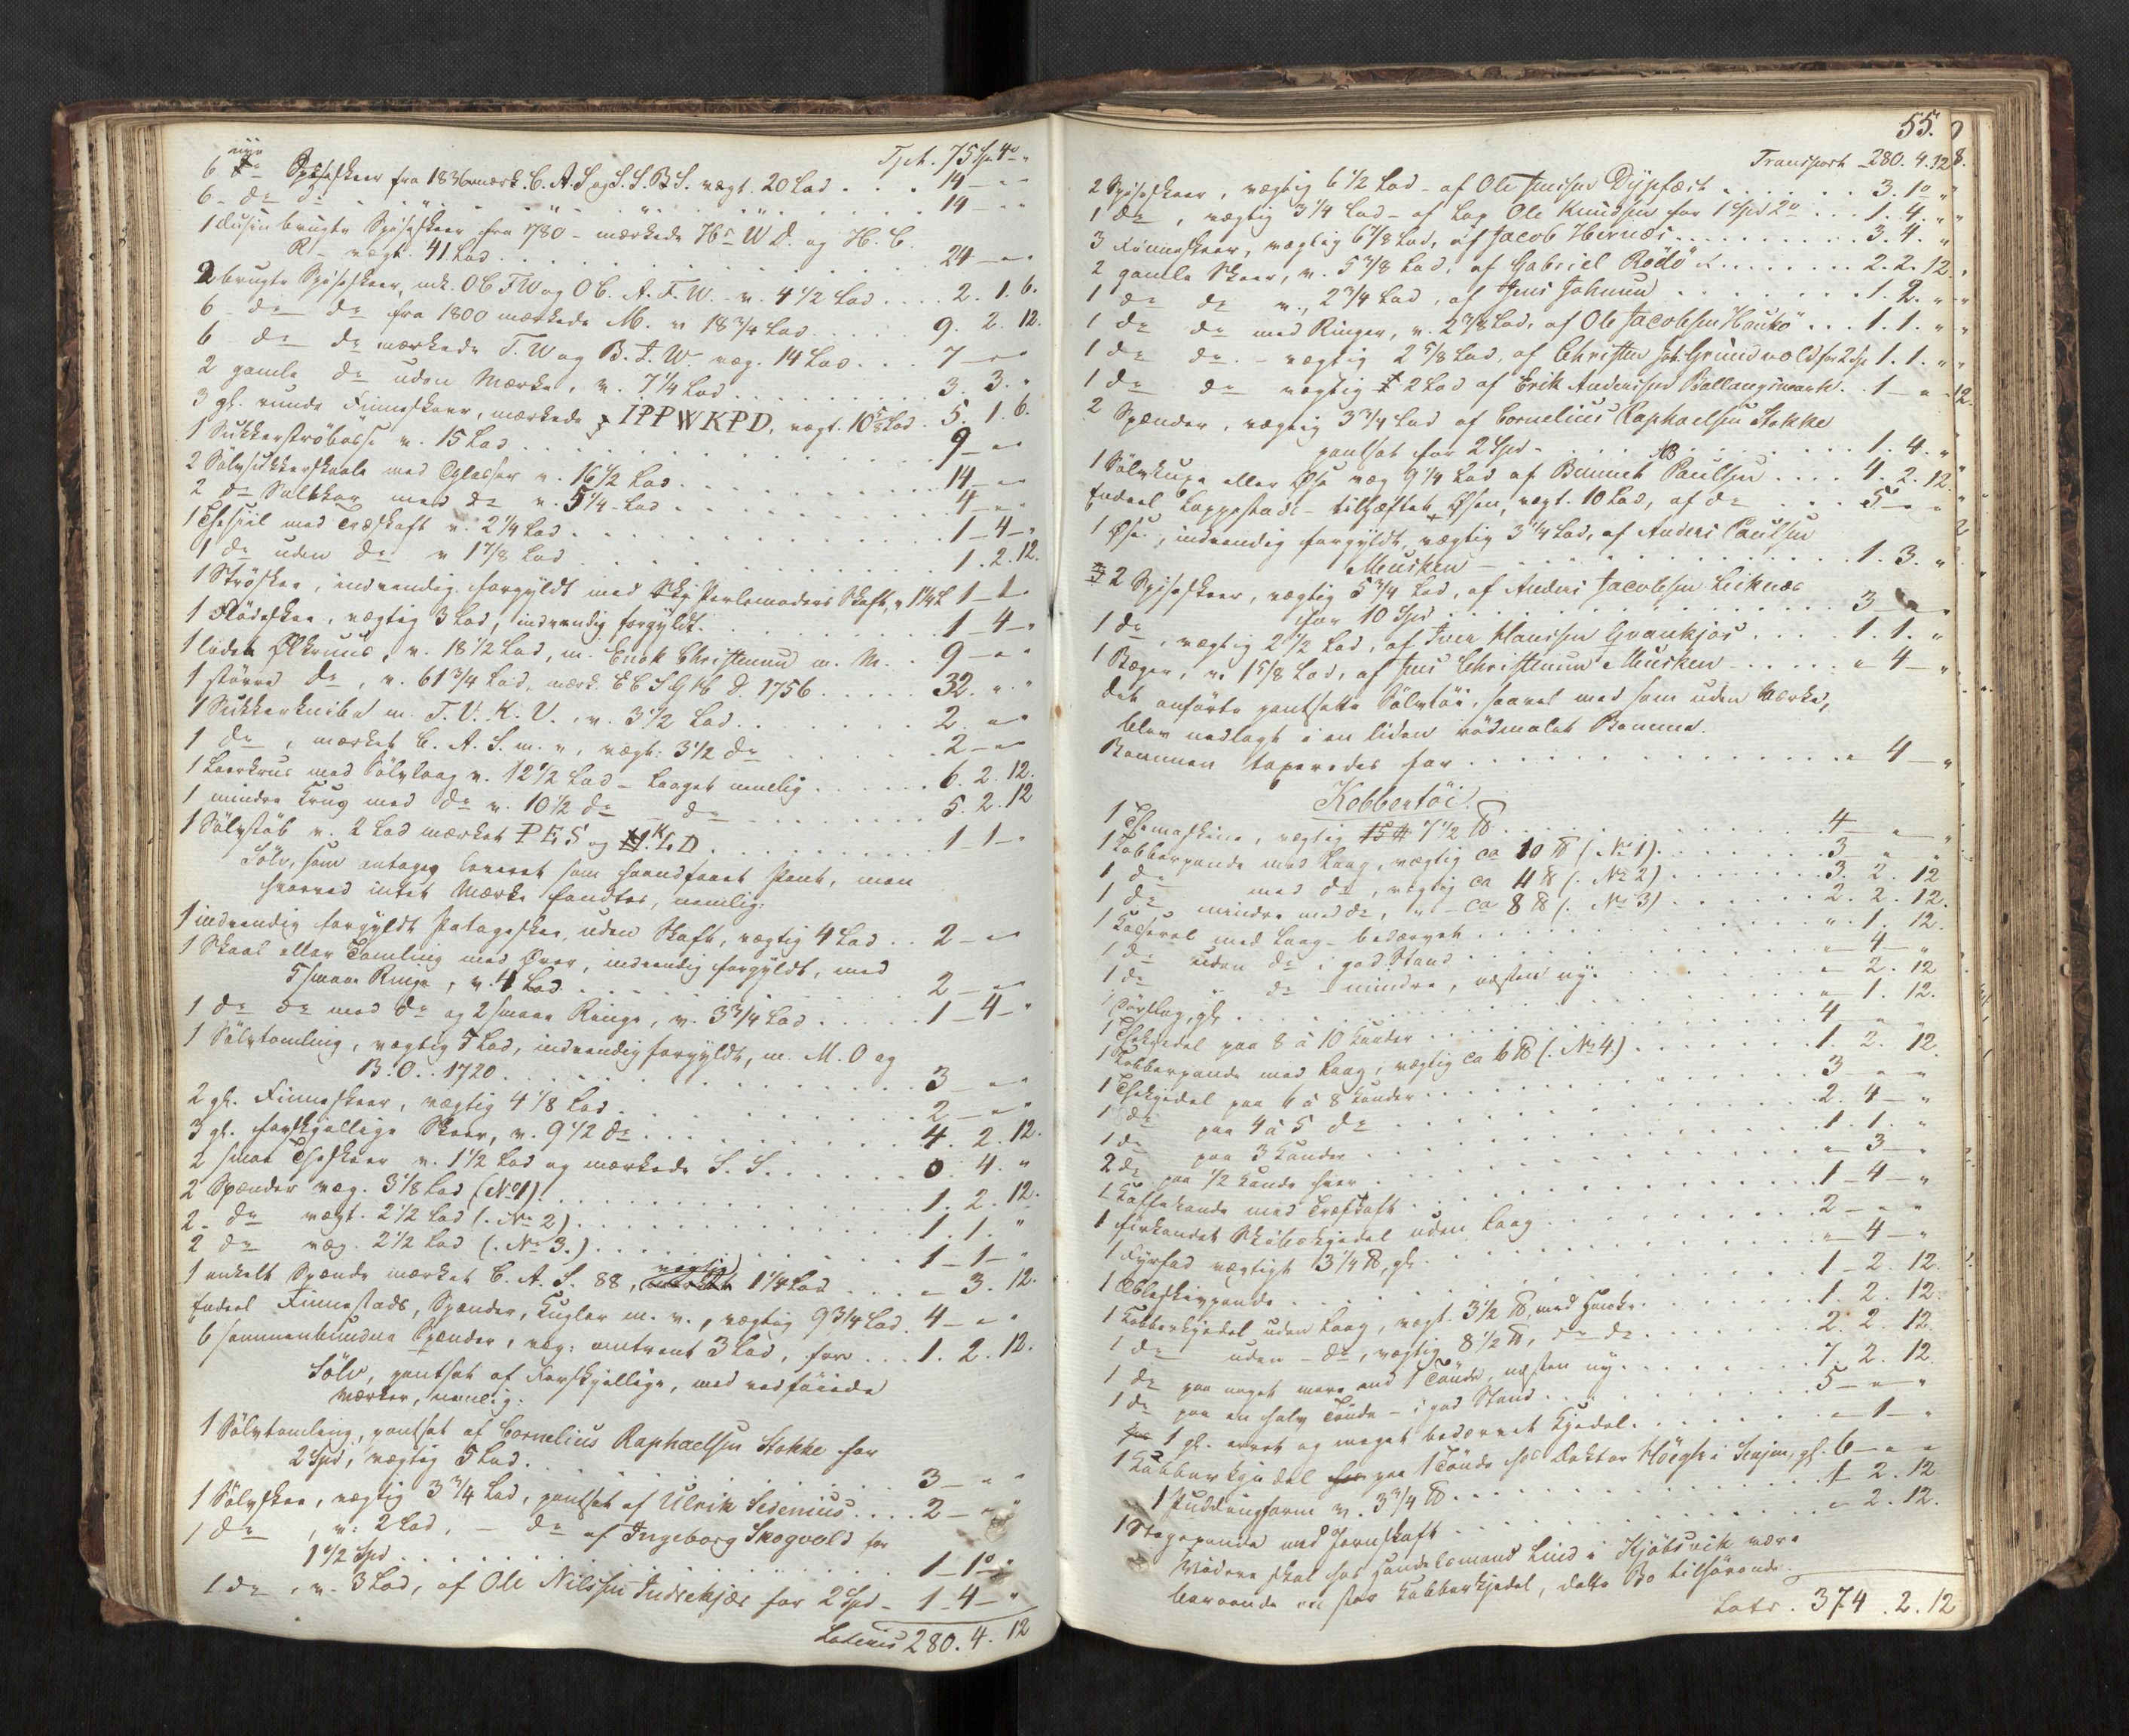 Tpt. 75 Spd 4 "
nye
6 Spiseskeer fra 1836 mærk. C. A. S. og S. S. B. S. vægt. 20 Lod . . . 14 - " "
6 - do . . . 14 - " "
1 Dusin brugte Spiseskeer fra 1780 - mærkede Hr W D. og H. C.
R - vægt. 41 Lod . . . 24 - " "
2 brugte Spiseskeer, mk. O C F W og O C. A. F. W. - v. 4 1/2 Lod . . . 2. 1. 6.
6 - do do fra 1800 mærkede M. v 18 3/4 Lod . . . 9. 2. 12.
6 do do mærkede T. W og B. I. W. væg. 14 Lod . . . 7 - " "
2 gamle do uden Mærke, v. 7 1/4 Lod . . . 3. 3. "
3 gl. runde Finneskeer, mærkede IPP WKPD, vægt. 10 5/8 Lod . 5. 1. 6.
1 Sukkerströbøsse v. 15 Lod . . . 9 - " "
2 Sölvsukkerskaale med Cglasser v. 16 1/2 Lod . . . 14 - " "
2 do Saltkar med do v. 5 1/4 Lod . . . 4 - " "
1 Thesiil med Træskaft v. 2 1/4 Lod . . . 1 - 4 - "
1 do uden do v 1 7/8 Lod . . . 1. 2. 12.
1 Ströskee, indvendig forgyldt med Perlemoders Skaft, v 1 1/4 L 1 - 1 - "
1 Flödeskee, vægtig 3 Lod, indvendig forgyldt . . . 1 - 4 - "
1 lidet Ölkruus, v. 18 1/2 Lod, m. Enok Christensen m. M. . . 9 - " "
1 större do, v. 61 3/4 Lod, mærk. E C S G H b D. 1756 . . . 32. " "
1 Sukkerknibe m. T. V. K. V. , v. 3 1/2 Lod . . . 2 - " "
1 do , mærket C. A. S. m. v, vægt. 3 1/2 do . . . 2 - " "
1 Leerkrus med Sölvlaag v. 12 1/2 Lod - Laaget nemlig . . . 6. 2. 12.
1 mindre Krug med do v. 10 1/2 do - do . . . 5. 2. 12
1 Sölvstöb v. 2 Lod mærket P E S og H. K L D . . . 1 - 1 - "
Sölv, som antages leveret som haandfaaet Pant, men
hvorved intet Mærke fandtes, nemlig:
1 indvendig forgyldt Potageskee, uden Skaft, vægtig 4 Lod . . 2 - " "
1 Skaal eller Tomling med Ører, indvendig forgyldt, med
5 smaae Ringe, v. 4 Lod . . . 2 - " "
1 do do med do og 2 smaae Ringe, v. 3 3/4 Lod . . . 1 - 4 - "
1 Sölvtomling, vægtig 5 Lod, indvendig forgyldt, m. M. O og
B. O. . 1720 . . . 3 - " "
2 gl. Finneskeer, vægtig 4 1/8 Lod . . . 2 - " "
3 gl. forskjellige Skeer, v. 9 1/2 do . . . 4. 2. 12.
2 smaae Theskeer v. 1 1/2 Lod og mærkede S. S. . . . 0. 4. "
2 Spænder væg. 3 1/8 Lod (No 1) . . . 1. 2. 12.
2 - do vægt. 2 1/2 Lod (. No 2) . . . 1. 1. "
2 do væg. 2 1/2 Lod (. No 3.) . . . 1 - 1 - "
1 enkelt Spænde mærket C. A. S. 88, vægtig 1 1/4 Lod . . . " 3. 12.
Endeel Finnestads, Spænder, Kugler m. v., vægtig 9 3/4 Lod . 4 - " "
6 sammenbundne Spænder, væg: omtrent 3 Lod, for . . . 1. 2. 12.
Sölv, pantsat af Forskjellige, med vedföiede
Mærker, nemlig:
1 Sölvtomling, pantsat af Cornelius Raphaelsen Stokke for
2 Spd, vægtig 5 Lod . . . 3 - " "
1 Sölvskee, vægtig 3 3/4 Lod, pantsat af Ulrik Sidenius . . . 2 - " "
1 do , v: 2 Lod, - do af Ingeborg Skogvold for
1 1/2 Spd . . . 1 - 1 "
1 do , v. 3 Lod, af Ole Nilsen Indrekjær for 2 Spd - 1 - 4 - "
Lateris 280. 4. 12
55.
Transport - 280. 4. 12
2 Spiseskeer, vægtig 6 1/2 Lod - af Ole Jensen Dÿpfæst . . . 3. 1 "
1 do , vægtig 3 1/4 Lod - af Lap Ole Knudsen for 1 Spd 2 . . . 1. 4. "
3 Finneskeer, vægtig 6 7/8 Lod, af Jacob Hernæs . . . 3. 4. "
2 gamle Skeer, v. 5 3/8 Lod, af Gabriel Rödö . . . 2. 2. 12.
1 do do v. 2 3/4 Lod, af Jens Johnsen . . . 1. 2. "
1 do do med Ringer, v. 2 7/8 Lod, af Ole Jacobsen Haukö . . . 1. 1. "
1 do do. - vægtig 2 5/8 Lod, af Christen Joh. Grundvold for 2 Sp 1. 1. "
1 do do vægtig 2 Lod af Erik Andersen Ballangsmark . . 1 - " "
2 Spænder, vægtig 3 3/4 Lod af Cornelius Raphaelsen Stokke
pantsat for 2 Spd - . . . 1. 4. "
1 Sölvkupe eller Öse væg 9 1/4 Lod af Bennet Paulsen . . . 4. 2. 12.
Endeel Lappestads - tilhæftet Ösen, vægt. 10 Lod, af do . . . 5 - " "
1 Öse, indvendig forgyldt, vægtig 3 1/4 Lod, af Anders Paulsen
Musken - . . . 1. 3. "
2 Spiseskeer, vægtig 5 3/4 Lod, af Anders Jacobsen Leiknæs
for 10 Spd . . . 3 - " "
1 do , vægtig 2 1/2 Lod, af Iver Hansen Grankjos . . . 1. 1. "
1 Bæger, v. 1 5/8 Lod, af Jens Christensen Musken . . . " 4 - "
Det anförte pantsatte Sölvtöi, saavel med som uden Mærke,
blev nedlagt i en liden rödmalet Bomme.
Bommen taxeredes for . . . " 4 - "
Kobbertöi.
1 Themaskine, vægtig 7 1/2 ℔ . . . 4 - " "
1 Kobberpande med Laag, vægtig ca 10 ℔ (. No 1) . . . 3 " "
1 do med do, vægtig ca 4 ℔ (. No 2) . . . 3. 2. 12
1 do mindre med do, " - ca 8 ℔ (. No 3) . . . 2. 2. 12.
1 Kasserol med Laag - bedærvet . . . " 1. 12.
1 do uden do i god Stand . . . " 4 - "
1 do " do - mindre, næsten ny . . . " 2. 12
1 Dörslag, gl . . . " 1. 12.
1 Thekjedel paa 8 à 10 Kander . . . 4 " "
1 Kobberpande med Laag, vægtig ca 6 ℔ (. No 4) . . . 1. 2. 12
1 Thekjedel paa 6 à 8 Kander . . . 3 - " "
1 do paa 4 à 5 do . . . 2. 4 - "
1 do paa 3 Kander . . . 1. 1. "
2 do paa 1/2 Kande hver . . . " 3 - "
1 Kaffekande med Træskaft . . . 1 - 4 - "
1 firkandet Skibskjedel uden Laag . . . 2 - " "
1 Fyrfad vægtigt 3 1/4 ℔, gl. . . . " 4 - "
1 Ebleskivpande . . . 1 - 2. 12.
1 Kobberkjedel uden Laag, vægt. 3 1/2 ℔, med Hanke . . . 1. 2. 12.
1 do uden - do, vægtig 8 1/2 ℔, do do . . . 2. 2. 12.
1 do paa noget mere end 1 Tönde, næsten ny . . . 7. 2. 12.
1 do paa en halv Tönde - i god Stand . . . 5 - " "
1 gl. arret og meget bedærvet Kjedel . . . " 1 - "
1 Kobberkjedel paa 1 Tönde hos Doktor Höegh i Senjen, gl. 6 - " "
1 Puddingform v. 3 3/4 ℔ . . . 1 2. 12
1 Stegepande med Jernskaft . . . " 2. 12.
Videre skal hos Handelsmand Lind i Kjöbsvik være
beroende en stor Kobberkjedel, dette Bo tilhörende.
Latr. 374. 2. 12